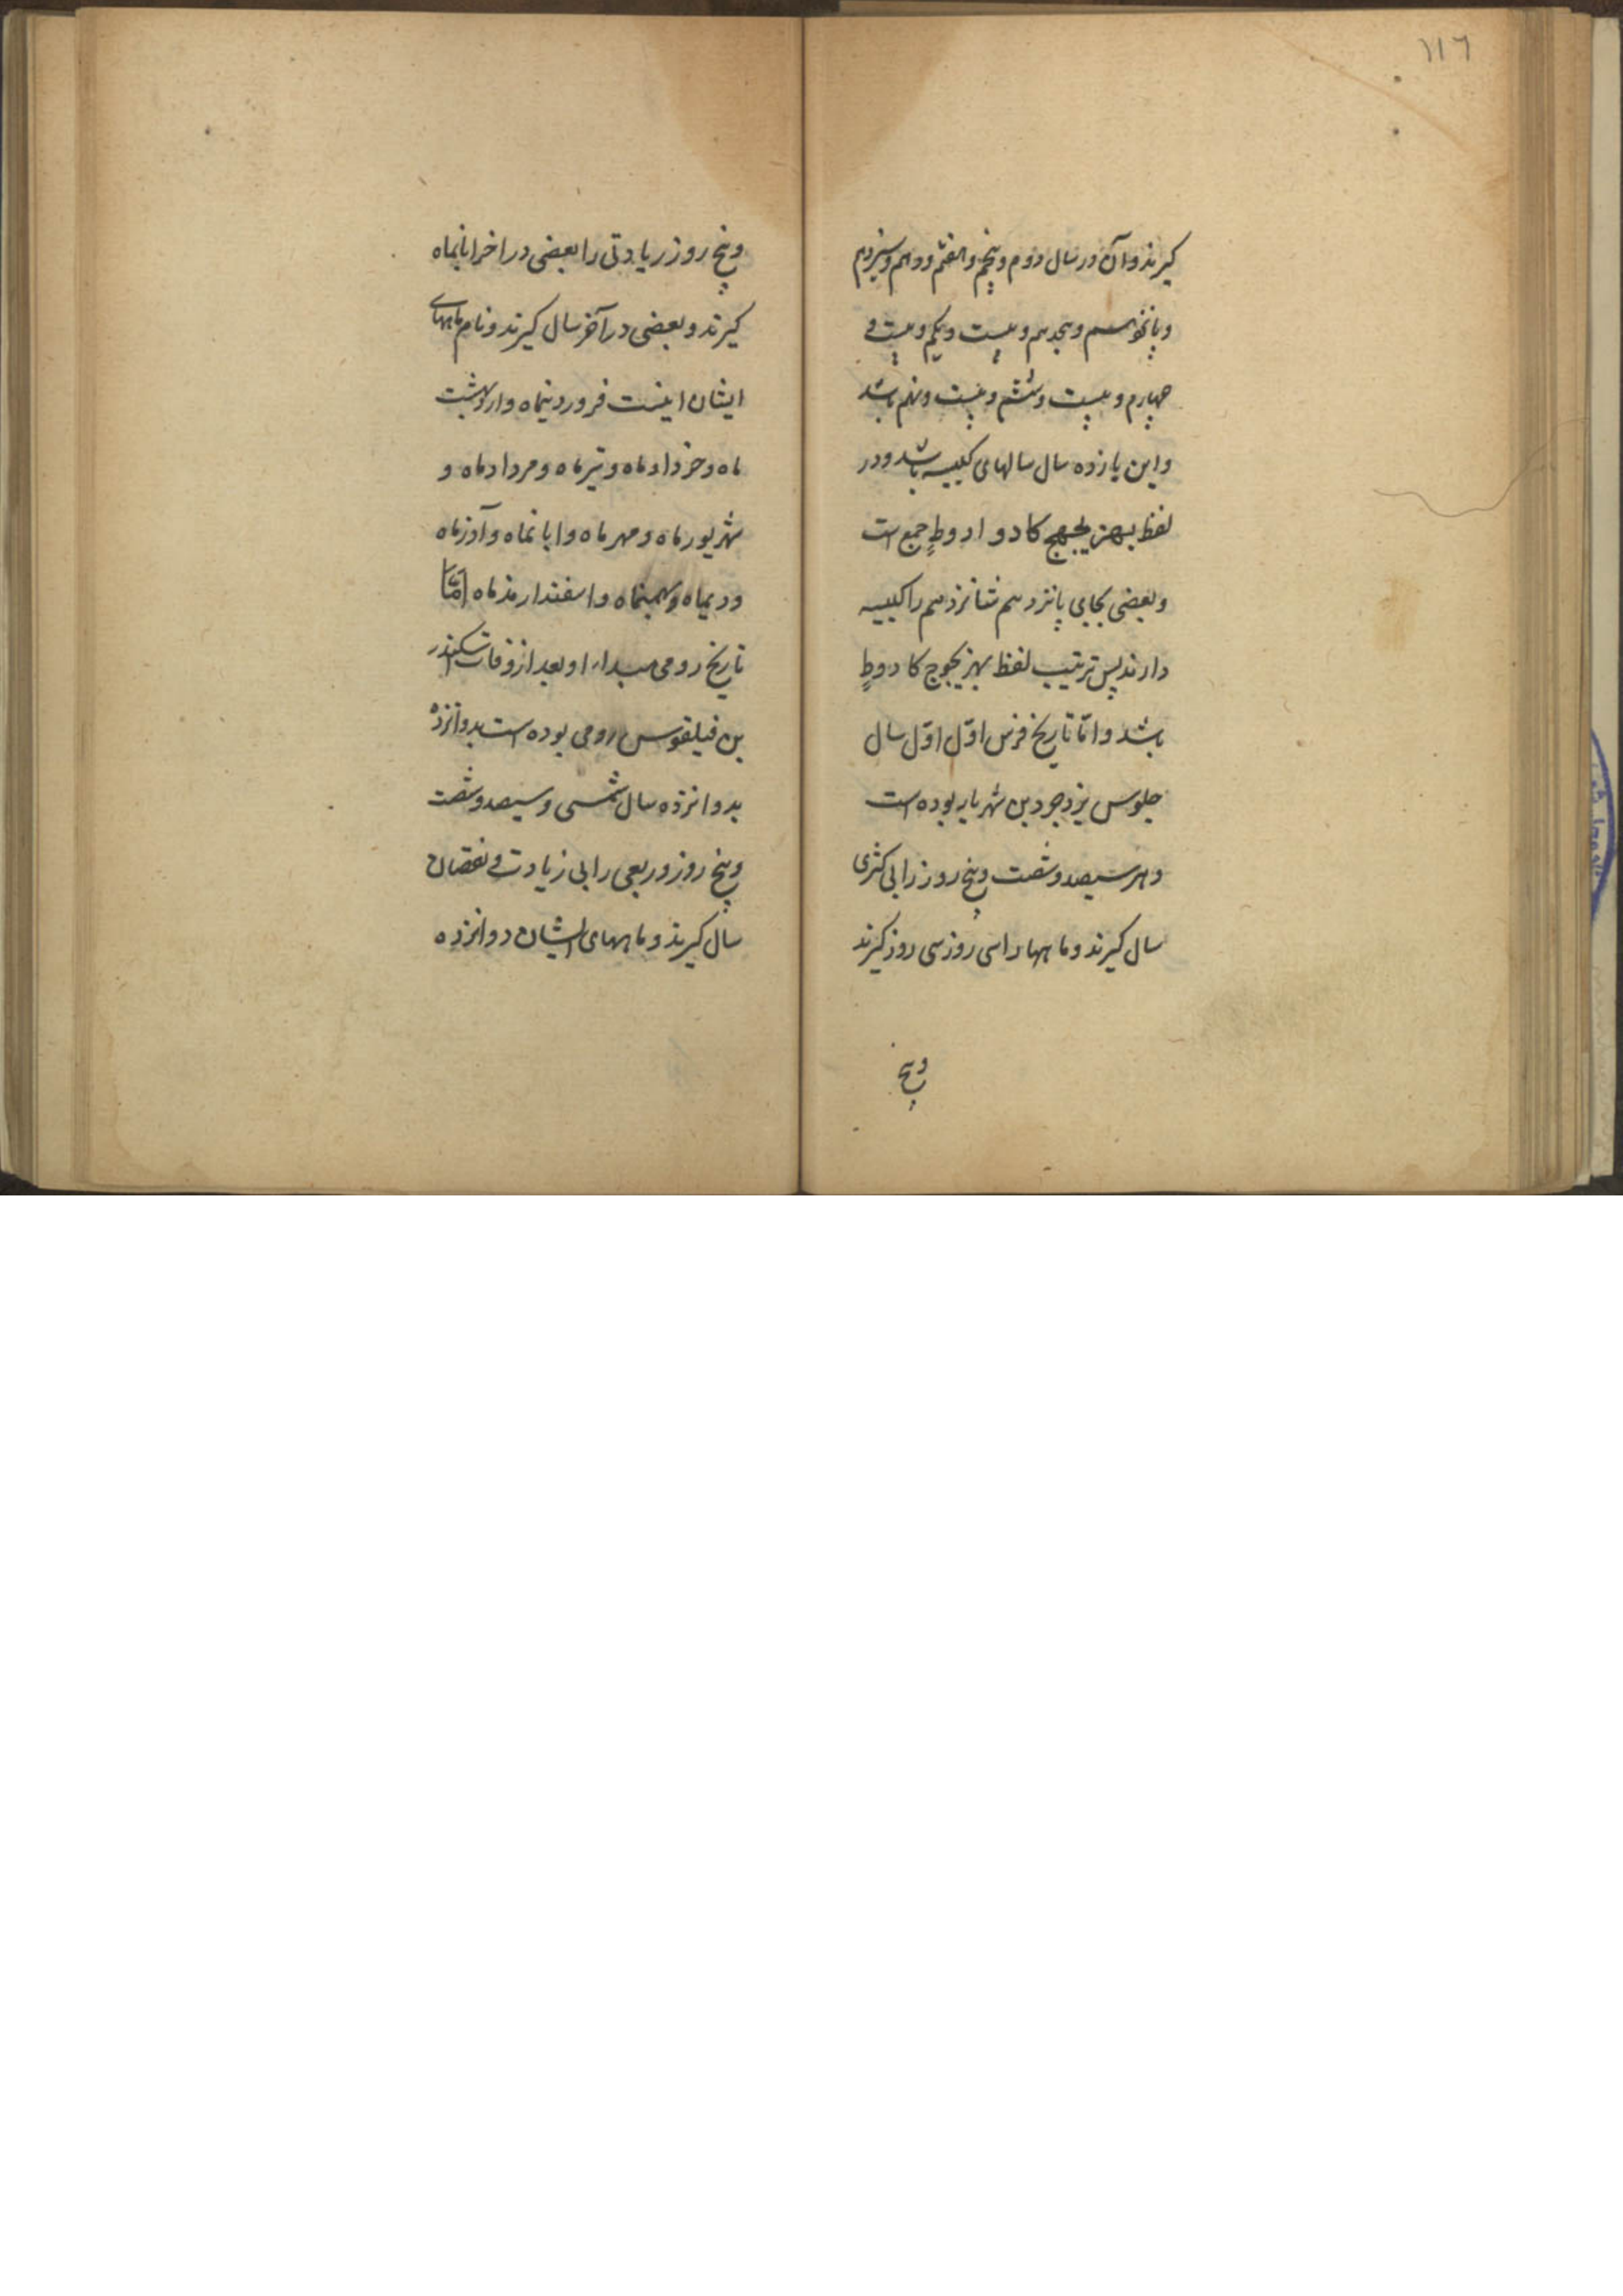 ١١٦
کیرند و آن در سال دوم و پنجم و هفتم و دهم و سیزدهم
و پانزدهم و هجدهم و بیست و یکم و بیست و
چهارم و بیست و ششم و بیست و نهم باشد
و این یازده سال سالهای کبیسه باشد و در
لفظ بهزیجهج کادواروط جمع است
و بعضی بجای پانزدهم شانزدهم را کبیسه
دارند پس ترتیب لفظ بهزیجوج کادوط
باشد و امّا تاریخ فرس اوّل اوّل سال
جلوس یزدجرد بن شهریار بوده است
و هر سیصد و شصت و پنج روز را بی کسری
سال کیرند و ماهها را سی روز سی روز کیرند
و پنج
و پنج روز زیادتی را بعضی در اخر ابانماه
کیرند و بعضی در آخر سال کیرند و نام ماههای
ایشان اینست فروردینماه و اردیبهشت
ماه و خردادماه و تیرماه و مردادماه و
شهریورماه و مهرماه و ابانماه و آذرماه
و دیماه و بهمنماه و اسفندارمذماه امّا
تاریخ رومی مبداء او بعد از وفات اسکندر
بن فیلقوس رومی بوده است بدوانزده
بدوانزده سال شمسی و سیصد و شصت
و پنج روز و ربعی را بی زیادت و نقصان
سال کیرند و ماههای ایشان دوانزده